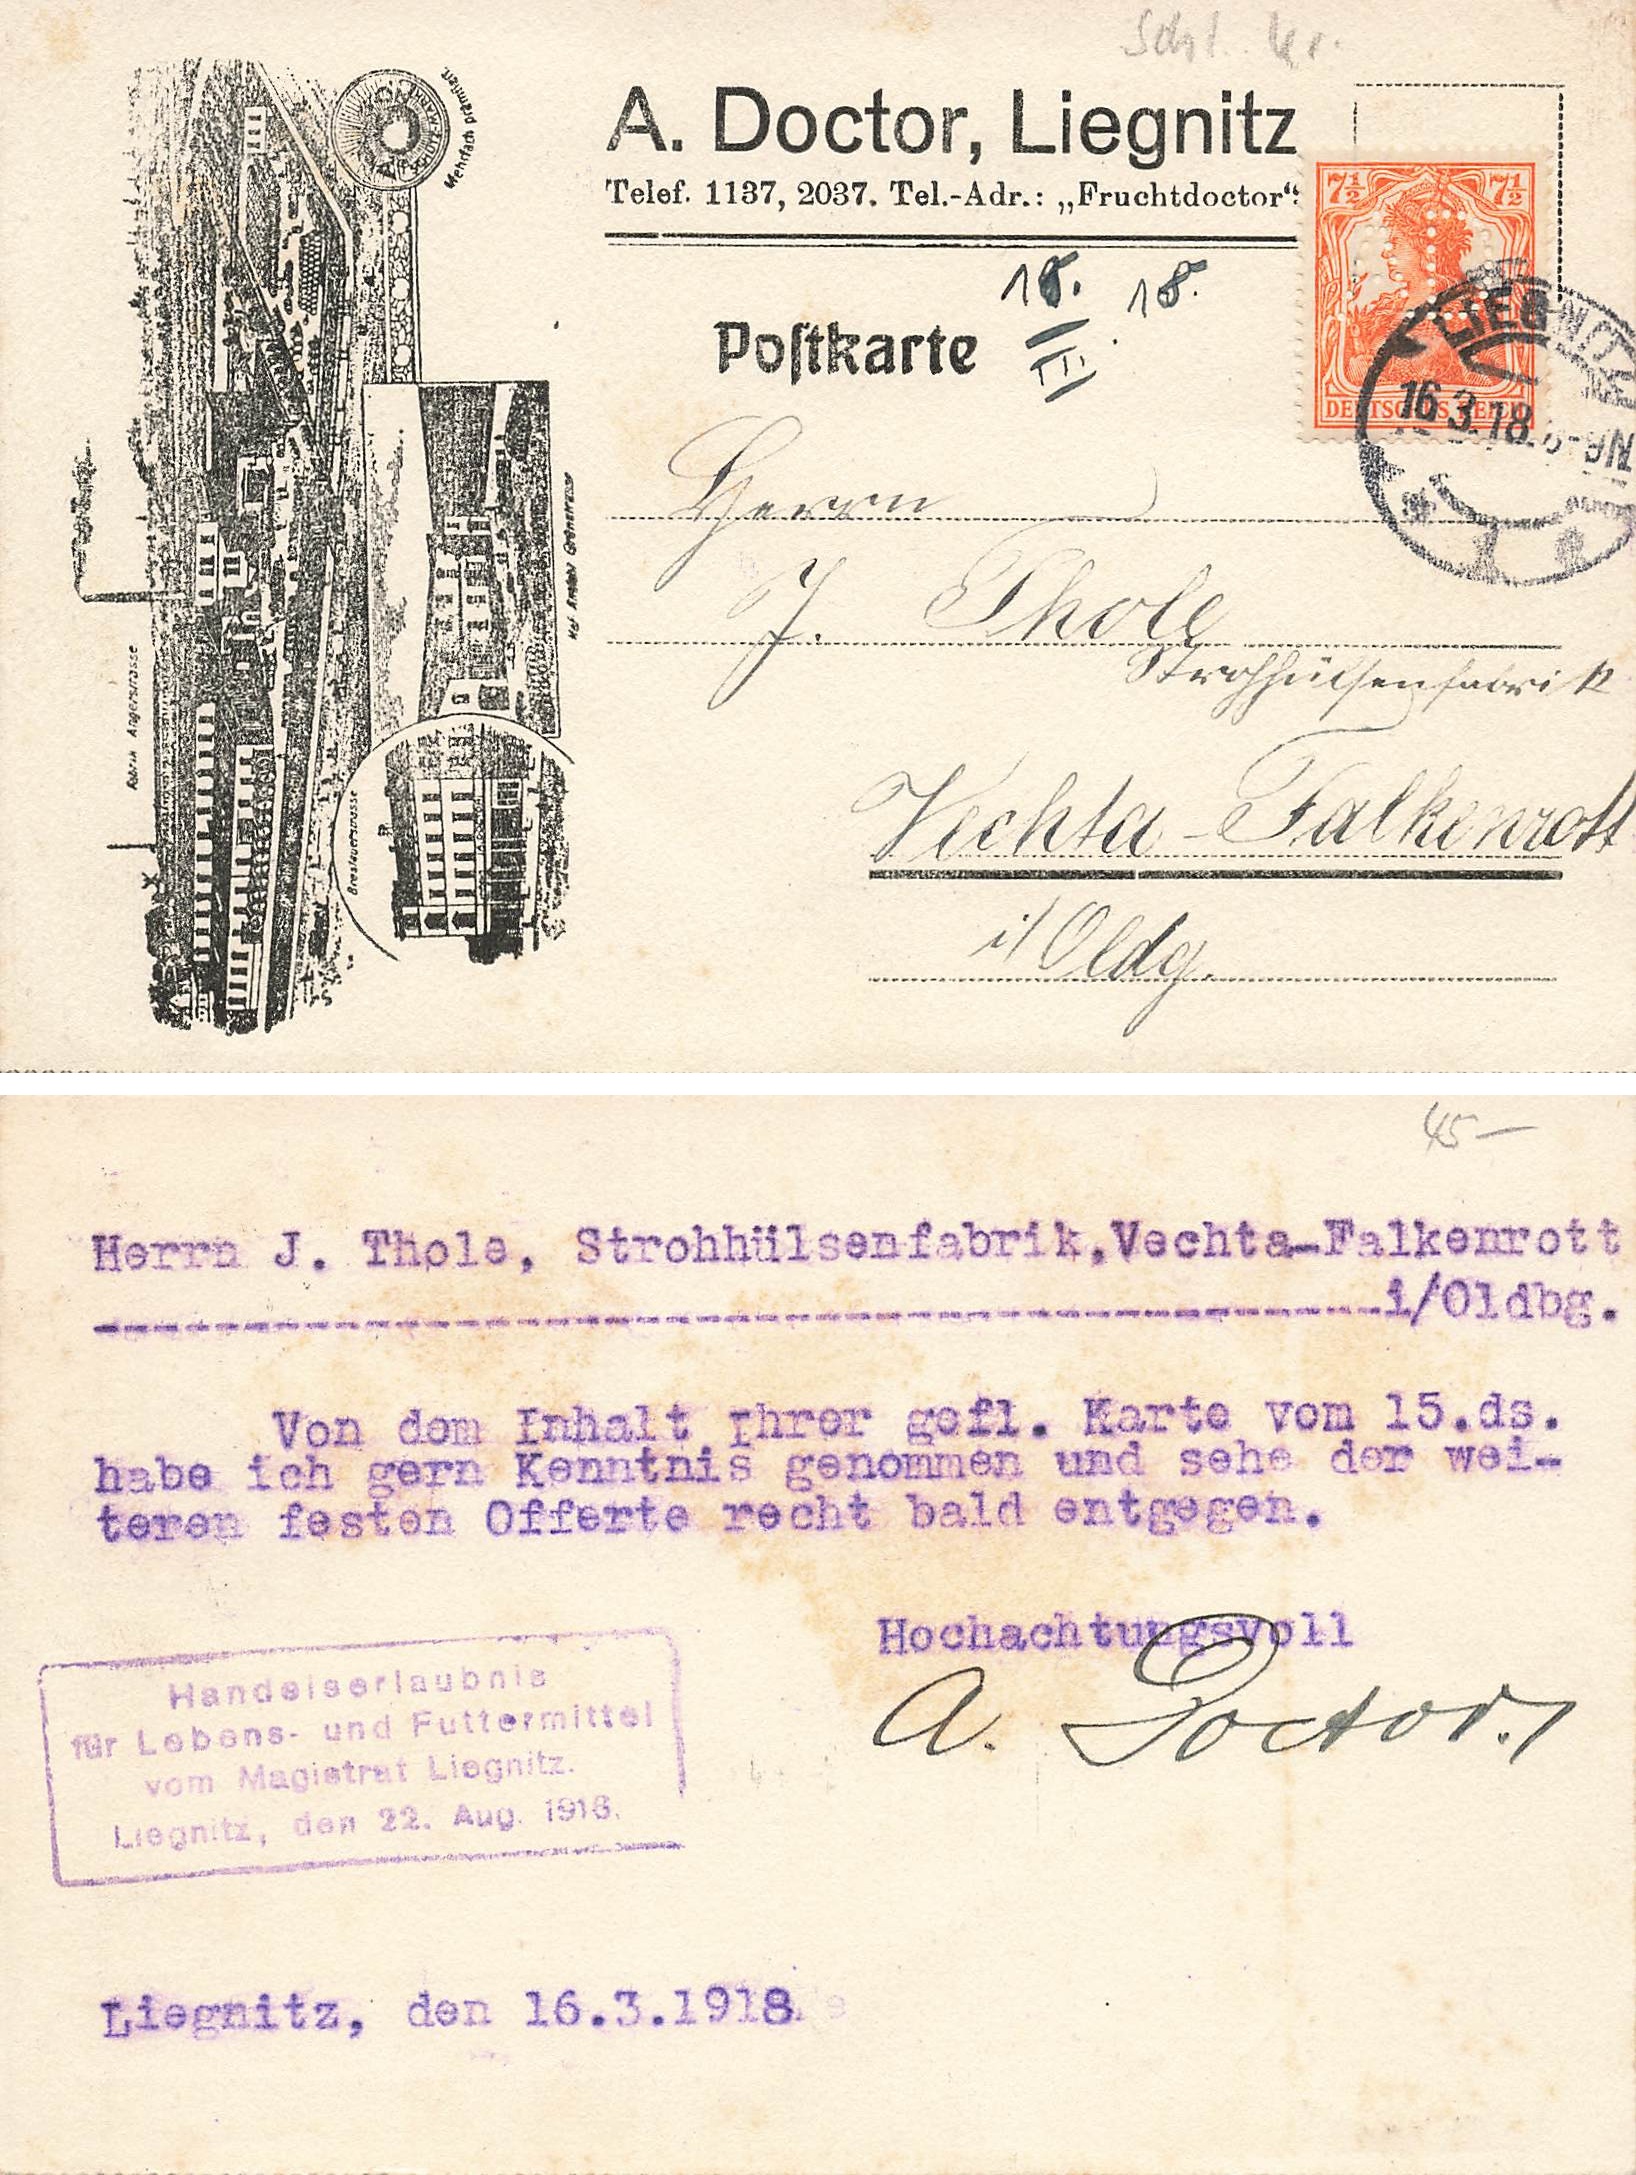 A. Doctor, Liegnitz
Telef. 1137, 2037. Tel.-Adr.: „Fruchtdoctor“
Mehrfach prämiiert.
Postkarte
18. III. 18.
7½ 7½
DEUTSCHES REICH
LIEGNITZ
16.3.18
Herrn
J. Thole
Strohhülsenfabrik
Vechta-Falkenrott
i/Oldg.
Fabrik Angerstrasse
Breslauerstrasse
45-
Herrn J. Thole, Strohhülsenfabrik,Vechta-Falkenrott
i/Oldbg.
Von dem Inhalt Ihrer gefl. Karte vom 15.ds.
habe ich gern Kenntnis genommen und sehe der wei-
teren festen Offerte recht bald entgegen.
Hochachtungsvoll
A. Doctor.
Handelserlaubnis
für Lebens- und Futtermittel
vom Magistrat Liegnitz.
Liegnitz, den 22. Aug. 1916.
Liegnitz, den 16.3.1918